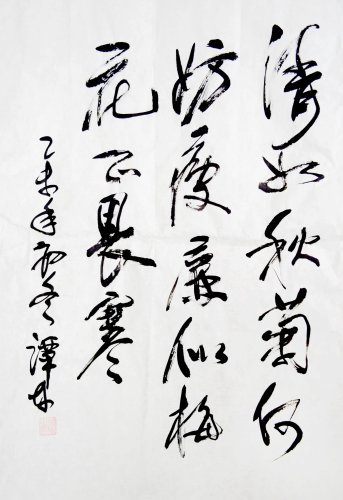 清如秋菊何
妨瘦廉似梅
花不畏寒
乙未年初冬潭林